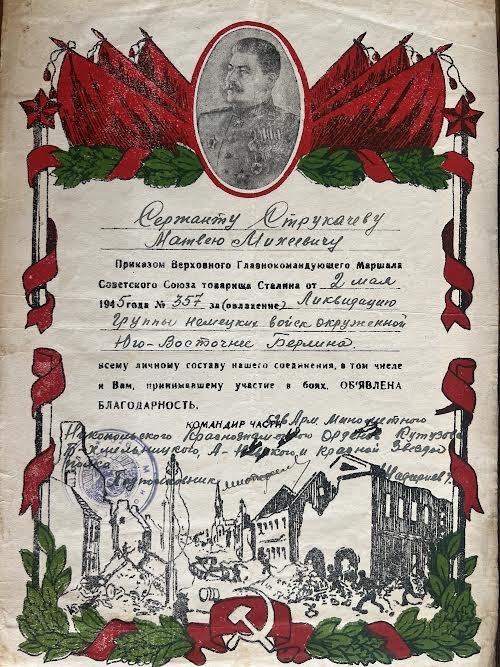 Сержанту Струкачеву
Матвею Михеевичу
Приказом Верховного Главнокомандующего Маршала
Советского Союза товарища Сталина от 2 мая
1945 года № 357 за (овладение) Ликвидацию
группы немецких войск окруженной
Юго-Восточнее Берлина
всему личному составу нашего соединения, в том числе
и Вам, принимавшему участие в боях, ОБ'ЯВЛЕНА
БЛАГОДАРНОСТЬ.
КОМАНДИР ЧАСТИ Арм. Минометного
Никопольского Краснознаменного Орденов Кутузова
Б-Хмельницкого, А-Невского и Красной Звезды
полка
Подполковник